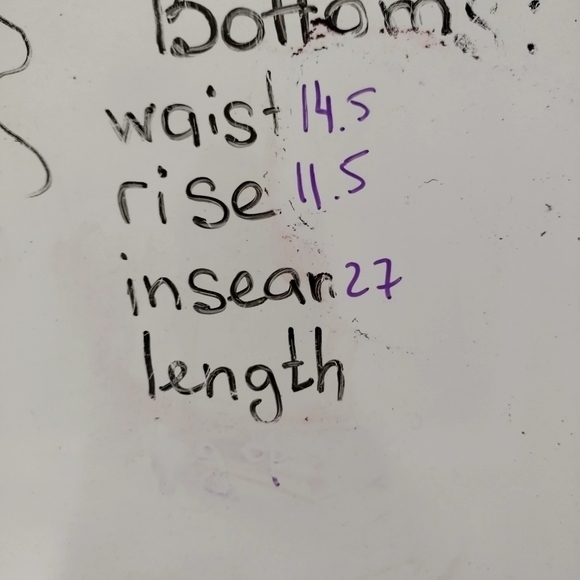 Bottoms:
waist 14.5
rise 11.5
insean 27
length